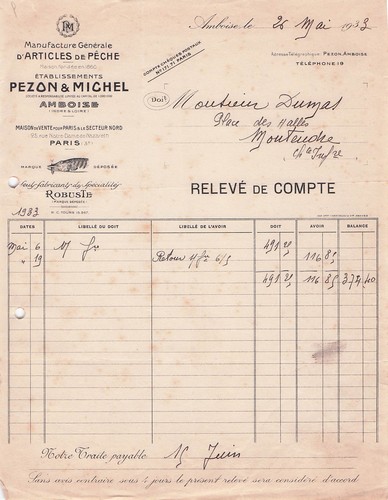 PM
Amboise, le 26 Mai 1933
Manufacture Générale
D'ARTICLES DE PÊCHE
ÉTABLISSEMENTS
PEZON & MICHEL
AMBOISE
(INDRE & LOIRE)
COMPTE CHÈQUES POSTAUX
PARIS
Adresse Télégraphique: PEZON-AMBOISE
TÉLÉPHONE 19
Doit
Monsieur Dumas
Place des Halles
Montendre
Ch^te Inf^re
MAISON DE VENTE POUR PARIS & LE SECTEUR NORD
PARIS
MARQUE DÉPOSÉE
Seuls fabricants des Spécialités
ROBUSTE
(MARQUE DÉPOSÉE)
RELEVÉ DE COMPTE
1933
R. C. TOURS
DATES LIBELLÉ DU DOIT LIBELLÉ DE L'AVOIR DOIT AVOIR BALANCE
Mai 6 N/ fre 491 25
" 19 Retour N/ fre 6/5 116 85
491 25 116 85 374 40
Notre Traite payable 15 Juin
Sans avis contraire sous 4 jours le présent relevé sera considéré d'accord